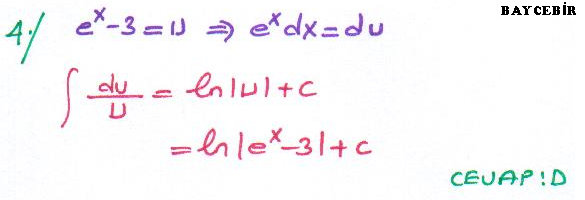 BAYCEBİR
4·/ eˣ-3=U ⇒ eˣdx=du
∫ du/U = ln|U|+c
= ln|eˣ-3|+c
CEVAP:D